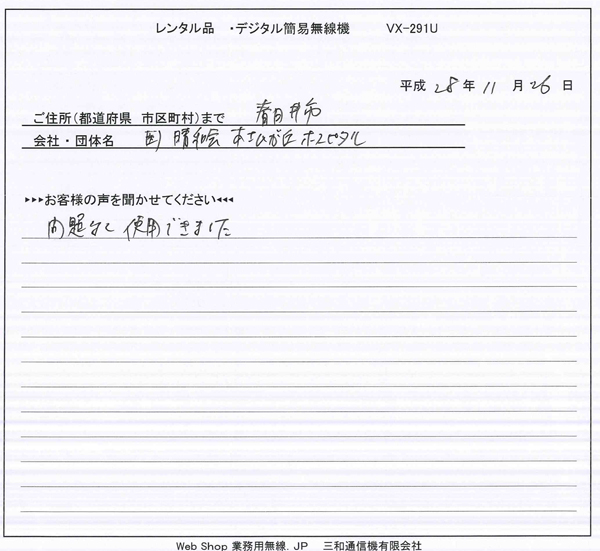 レンタル品 ・デジタル簡易無線機 VX-291U
平成 28 年 11 月 26 日
ご住所(都道府県 市区町村)まで 春日井市
会社・団体名 医) 晴和会 あさひが丘ホスピタル
▸▸▸お客様の声を聞かせてください◂◂◂
問題なく使用できました
Web Shop 業務用無線.JP 三和通信機有限会社